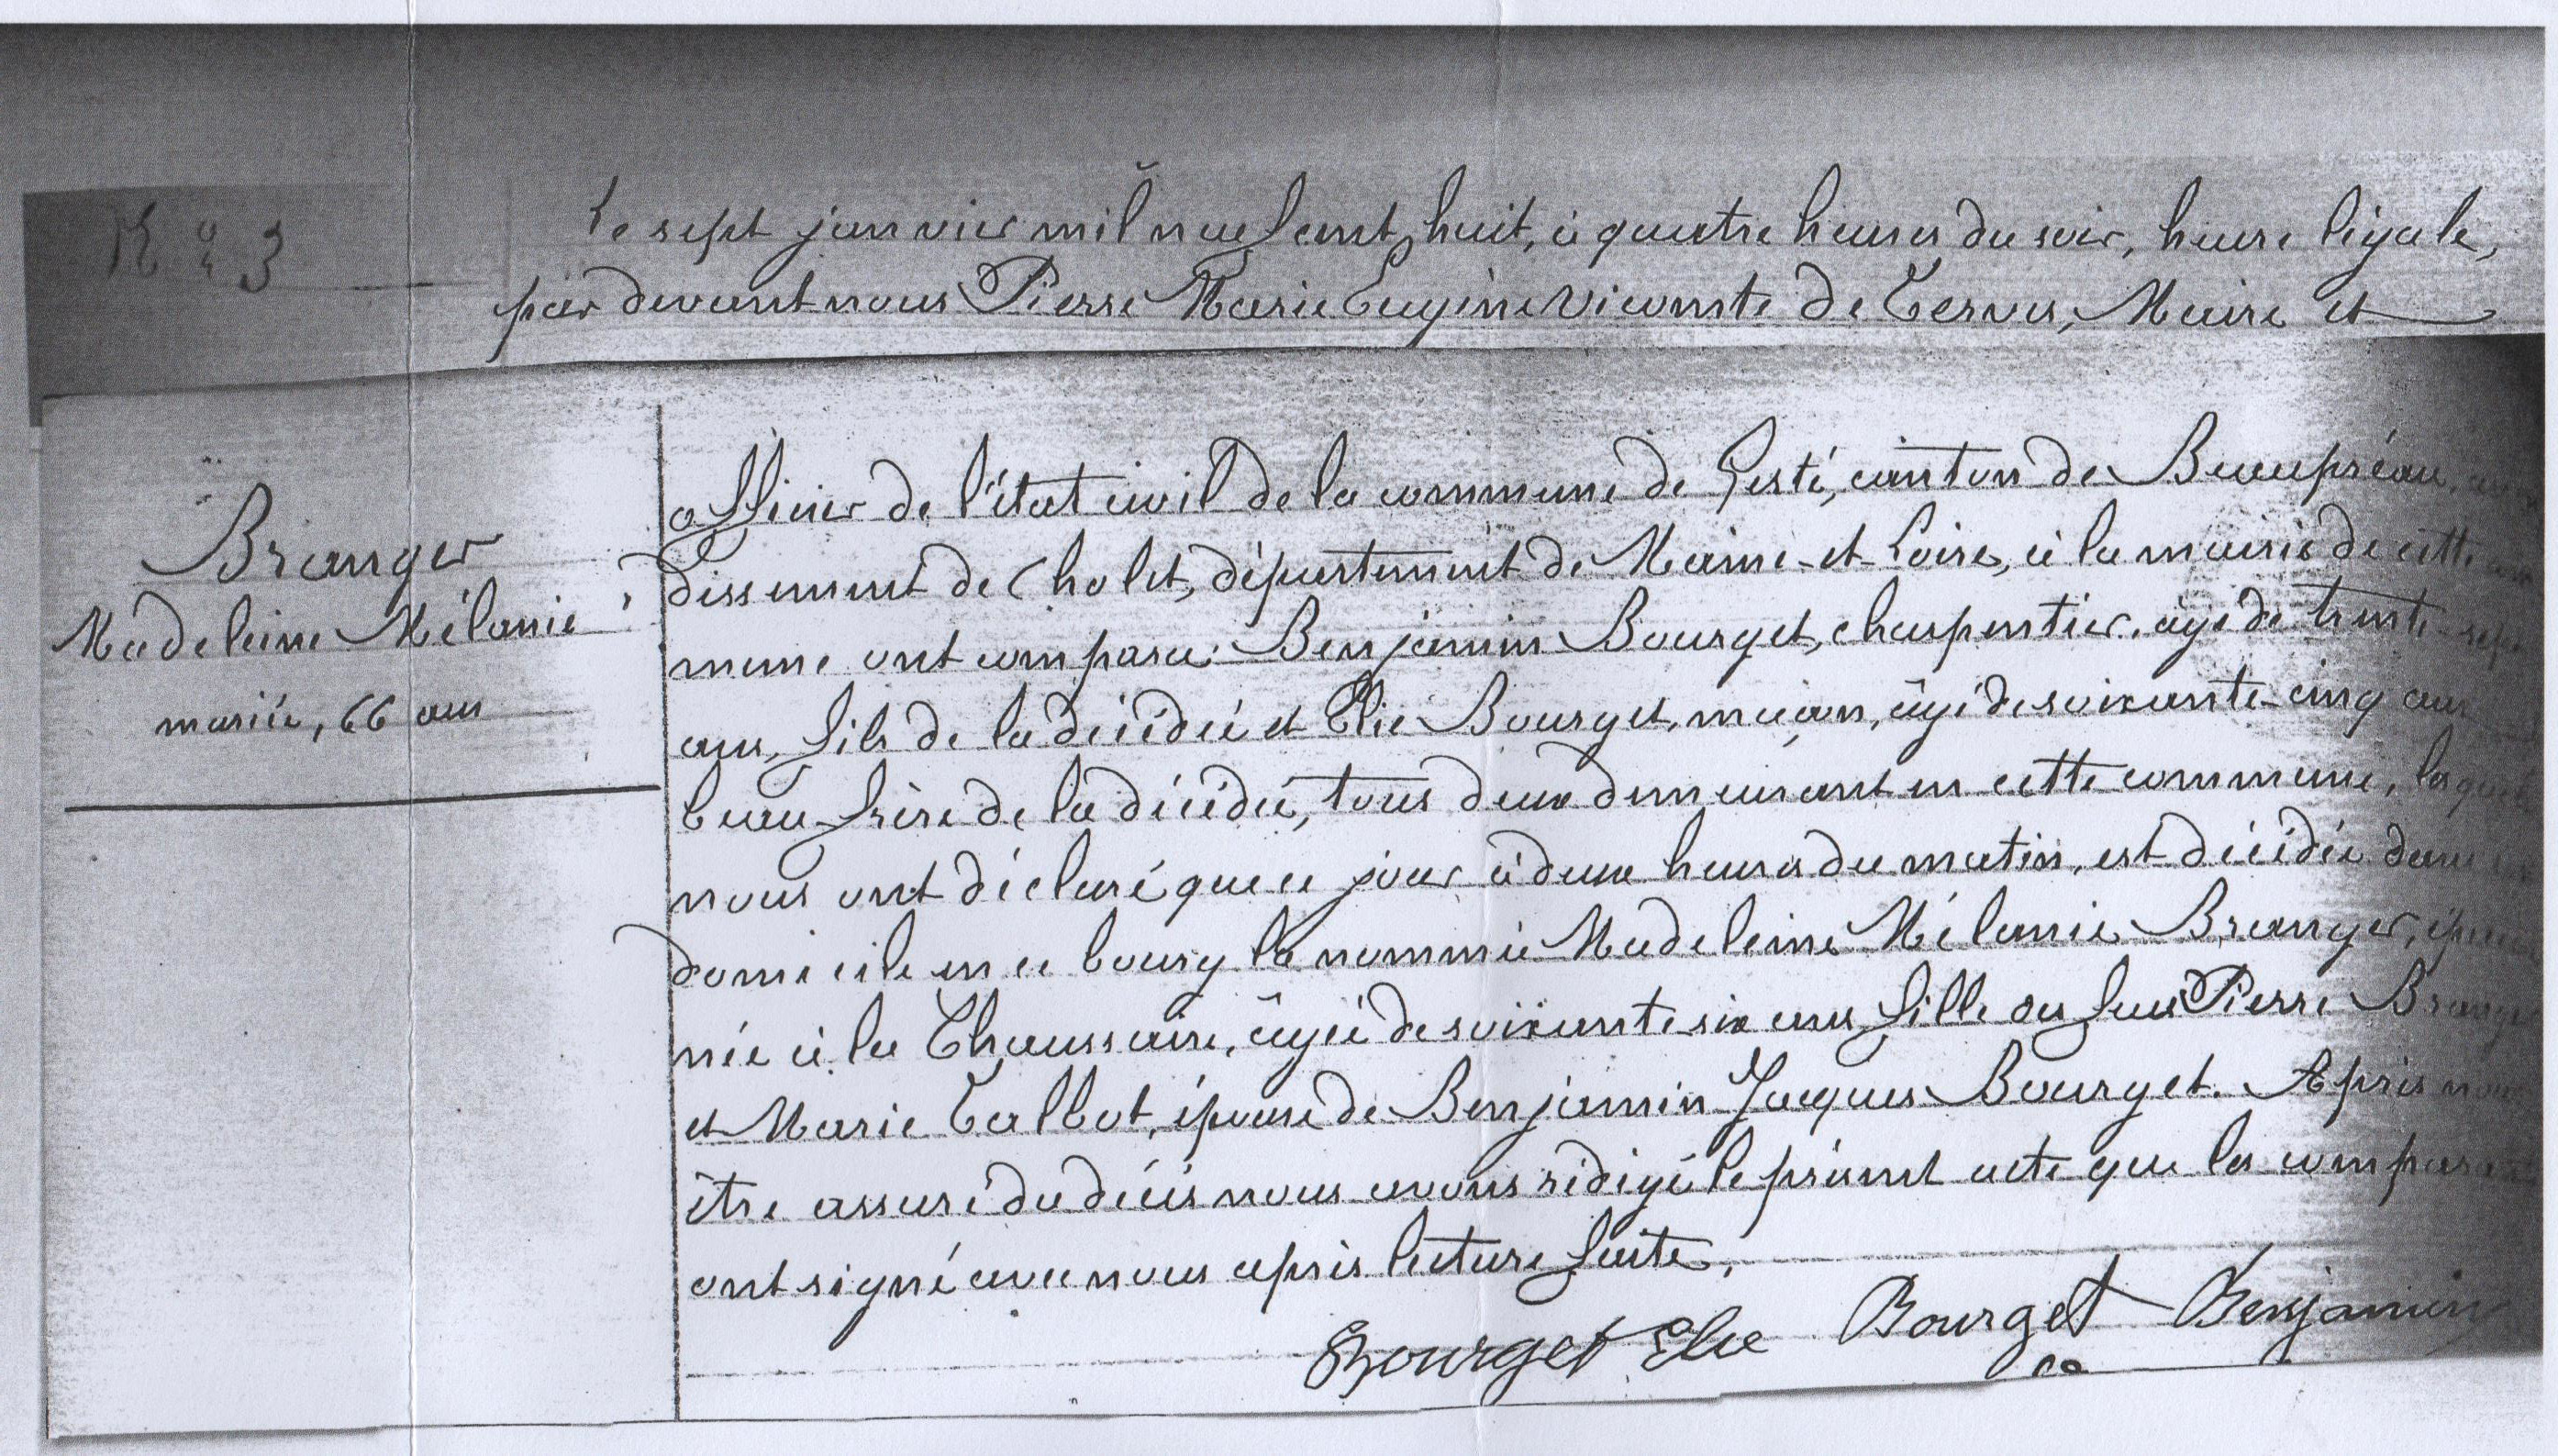 N° 3
Le sept janvier mil neuf cent huit, à quatre heures du soir, heure légale,
par devant nous Pierre Marie Eugène Vicomte de Terves, Maire et
Branger
Madeleine Mélanie
mariée, 66 ans
officier de l'état civil de la commune de Gesté, canton de Beaupréau,
dissement de Cholet, département de Maine-et-Loire, à la mairie de cette
mune ont comparu: Benjamin Bourget, charpentier, âgé de trente-sept
ans, fils de la décédée et Elie Bourget, maçon, âgé de soixante-cinq ans
beau-frère de la décédée, tous deux demeurant en cette commune,
nous ont déclaré que ce jour à deux heures du matin, est décédée dans
domicile en ce bourg la nommée Madeleine Mélanie Branger,
née à la Chaussaire, âgée de soixante six ans fille des feus Pierre Branger
et Marie Talbot, épouse de Benjamin Jacques Bourget. Après nous
être assuré du décès nous avons rédigé le présent acte que les comparants
ont signé avec nous après lecture faite.
Bourget Elie Bourget Benjamin